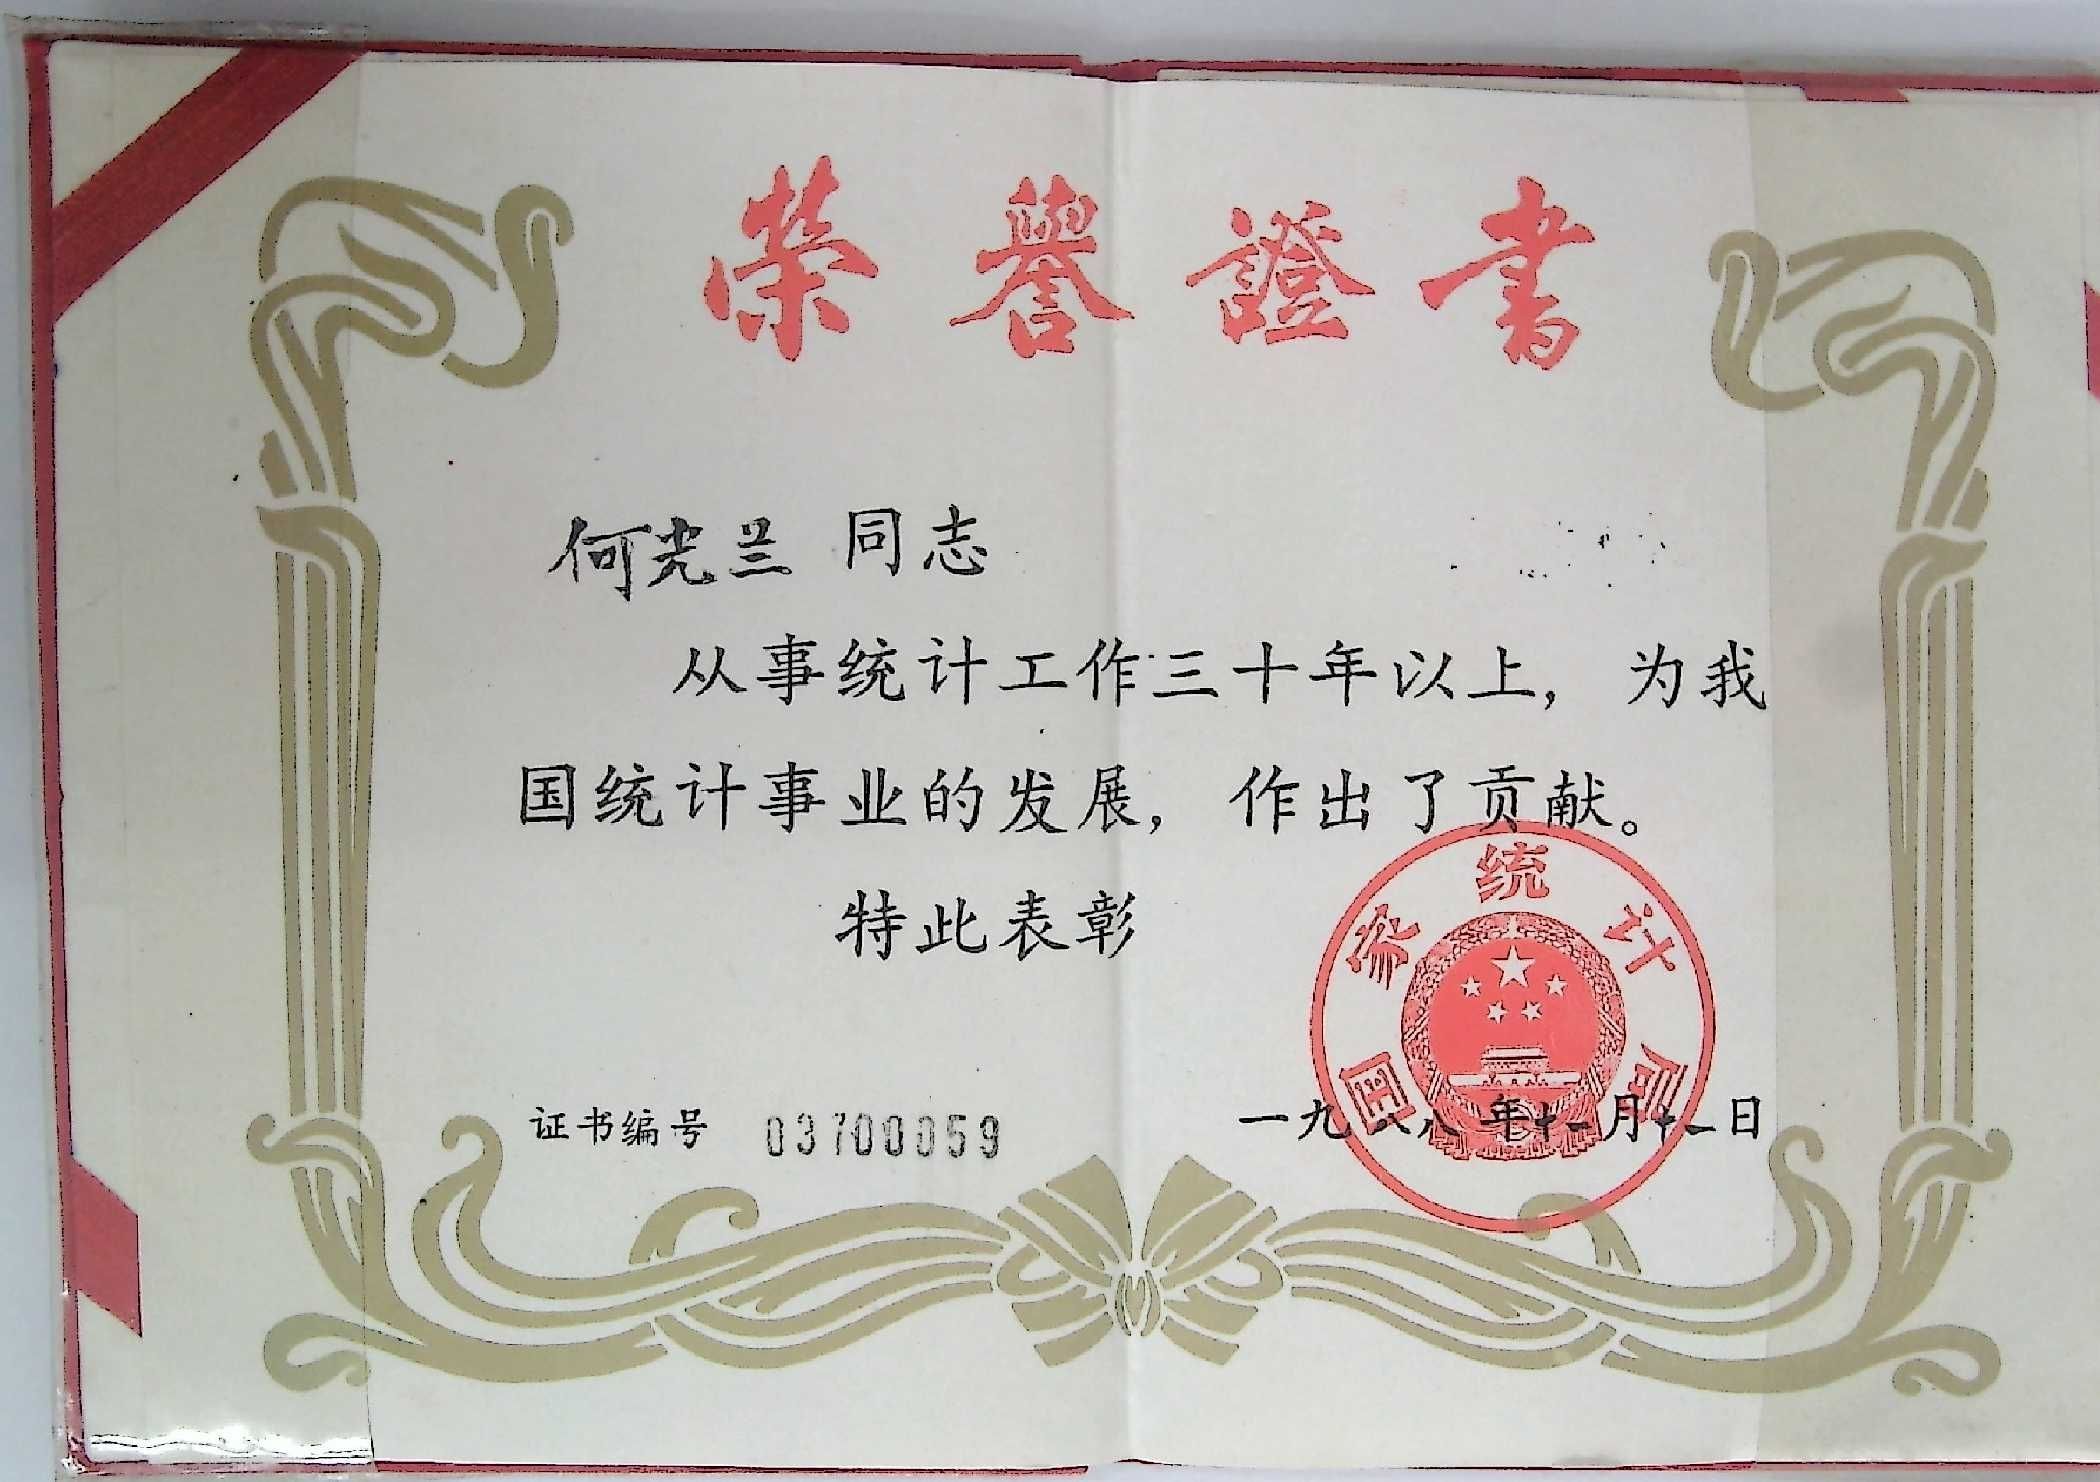 榮譽證書
何光兰 同志
从事统计工作三十年以上，为我
国统计事业的发展，作出了贡献。
特此表彰
国家统计局
证书编号 03700059
一九八八年十二月十二日